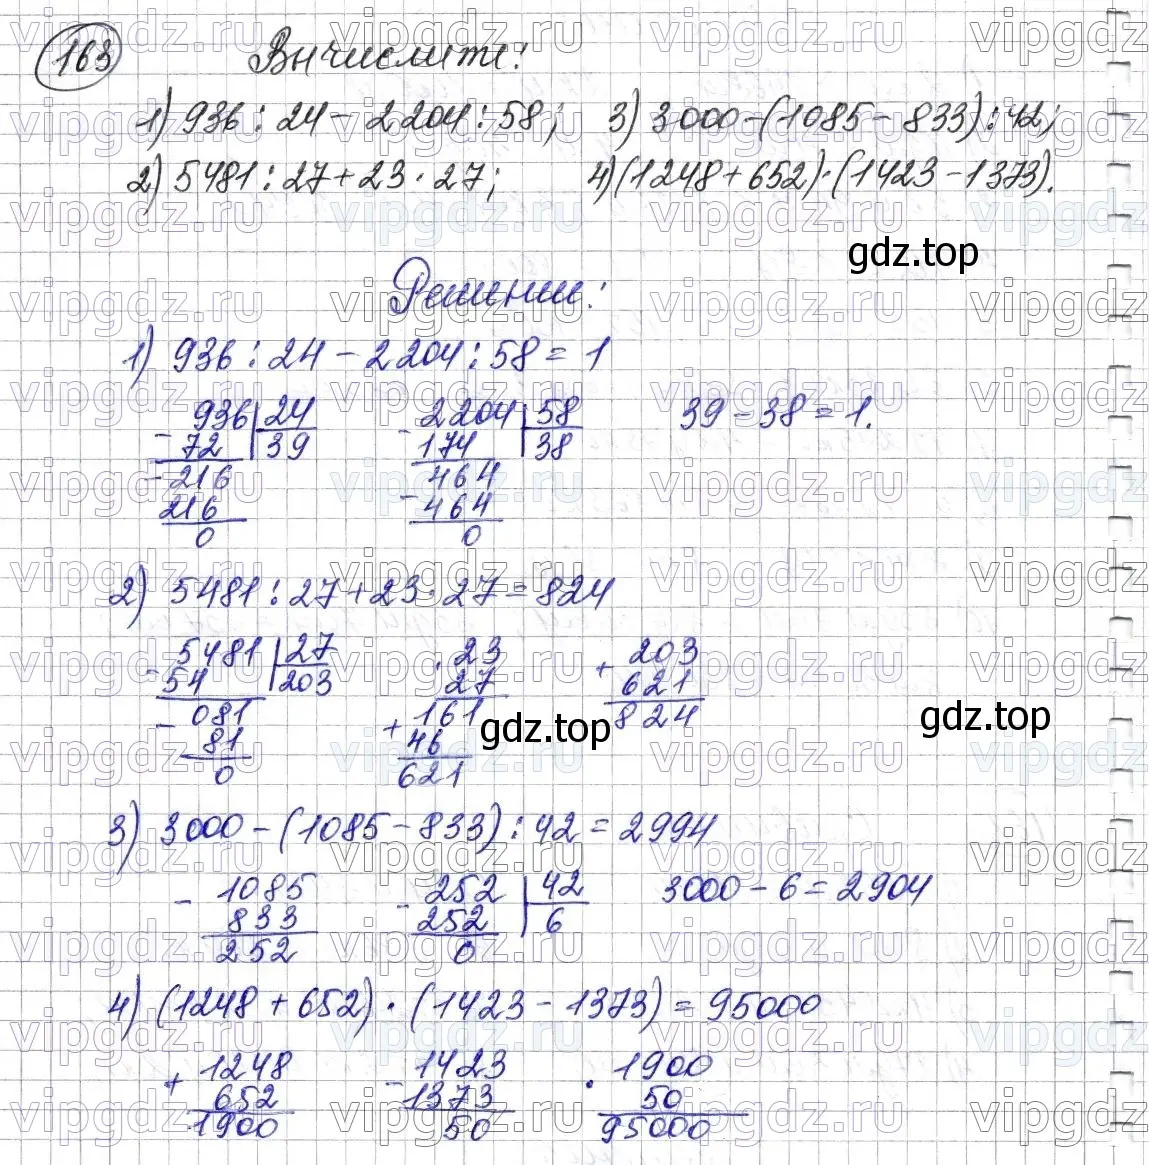 163 Вычислите:
1) 936 : 24 - 2204 : 58; 3) 3000 - (1085 - 833) : 42;
2) 5481 : 27 + 23 · 27; 4) (1248 + 652) · (1423 - 1373).
gdz.top
Решении:
1) 936 : 24 - 2204 : 58 = 1
936 | 24 2204 | 58 39 - 38 = 1.
- 72 39 - 174 38
- 216 464
216 - 464
0 0
2) 5481 : 27 + 23 · 27 = 824
- 5481 | 27 · 23 + 203
54 203 27 621
- 081 + 161 824
81 46
0 621
gdz.top gdz.top
3) 3000 - (1085 - 833) : 42 = 2994
- 1085 - 252 | 42 3000 - 6 = 2904
833 252 6
252 0
4) (1248 + 652) · (1423 - 1373) = 95000
+ 1248 - 1423 · 1900
652 1373 50
1900 50 95000
vipgdz.ru